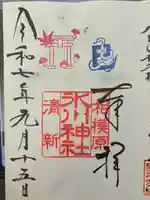 奉拝
相模原
氷川神社
清新
令和七年九月十五日